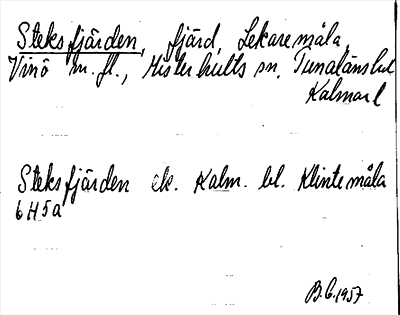 Steksfjärden, fjärd, Lekaremåla,
Vinö m. fl., Misterhults sn, Tunaläns hd
Kalmar l
Steksfjärden ek. Kalm. bl. Klintemåla
6H5a
B.G. 1957